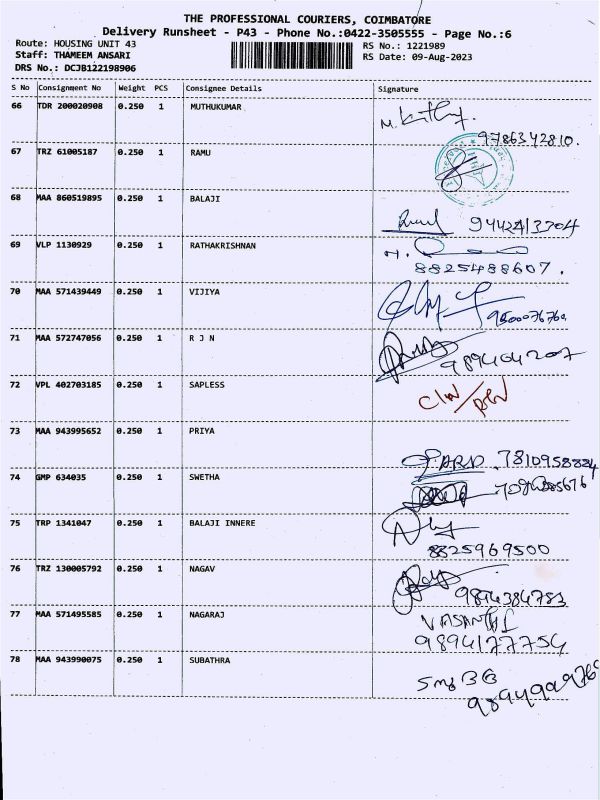 THE PROFESSIONAL COURIERS, COIMBATORE
Delivery Runsheet - P43 - Phone No.:0422-3505555 - Page No.:6
Route: HOUSING UNIT 43
RS No.: 1221989
Staff: THAMEEM ANSARI
RS Date: 09-Aug-2023
DRS No.: DCJB122198906
S No Consignment No Weight PCS Consignee Details Signature
66 TDR 200020908 0.250 1 MUTHUKUMAR
9786342810.
67 TRZ 61005187 0.250 1 RAMU
68 MAA 860519895 0.250 1 BALAJI
9442413704
69 VLP 1130929 0.250 1 RATHAKRISHNAN
8825488607.
70 MAA 571439449 0.250 1 VIJIYA
71 MAA 572747056 0.250 1 R J N
9894042007
72 VPL 402703185 0.250 1 SAPLESS
73 MAA 943995652 0.250 1 PRIYA
7810958884
74 GMP 634035 0.250 1 SWETHA
75 TRP 1341047 0.250 1 BALAJI INNERE
8825969500
76 TRZ 130005792 0.250 1 NAGAV
9894384783
77 MAA 571495585 0.250 1 NAGARAJ
VASANTHI
9894177754
78 MAA 943990075 0.250 1 SUBATHRA